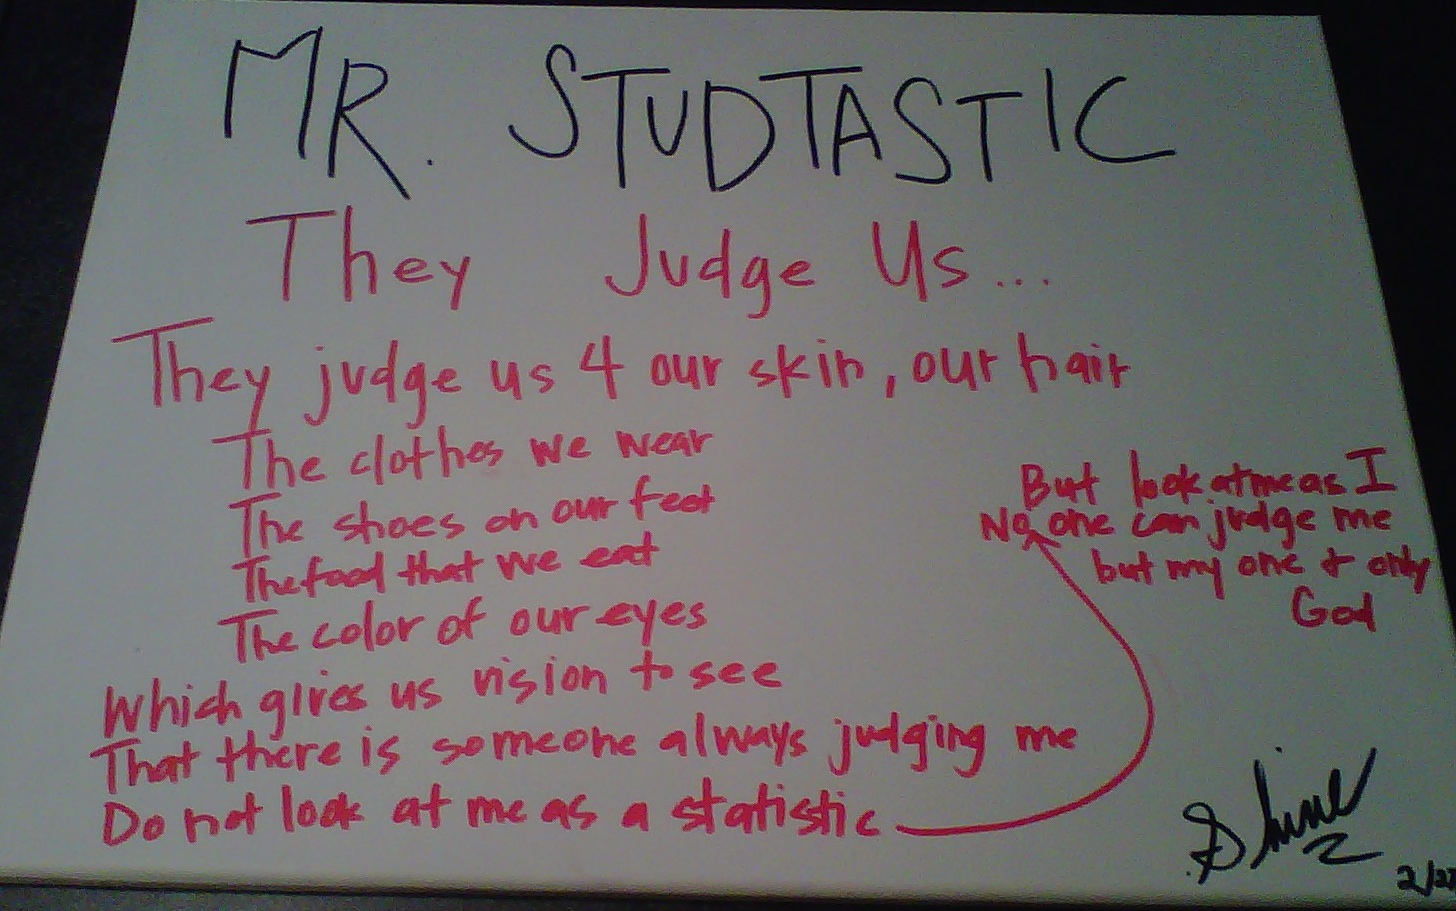 MR. STUDTASTIC
They Judge Us...
They judge us 4 our skin, our hair
The clothes we wear
The shoes on our feet
The food that we eat
The color of our eyes
Which gives us vision to see
That there is someone always judging me
Do not look at me as a statistic
But look at me as I
No one can judge me
but my one + only
God
Shine
2/27